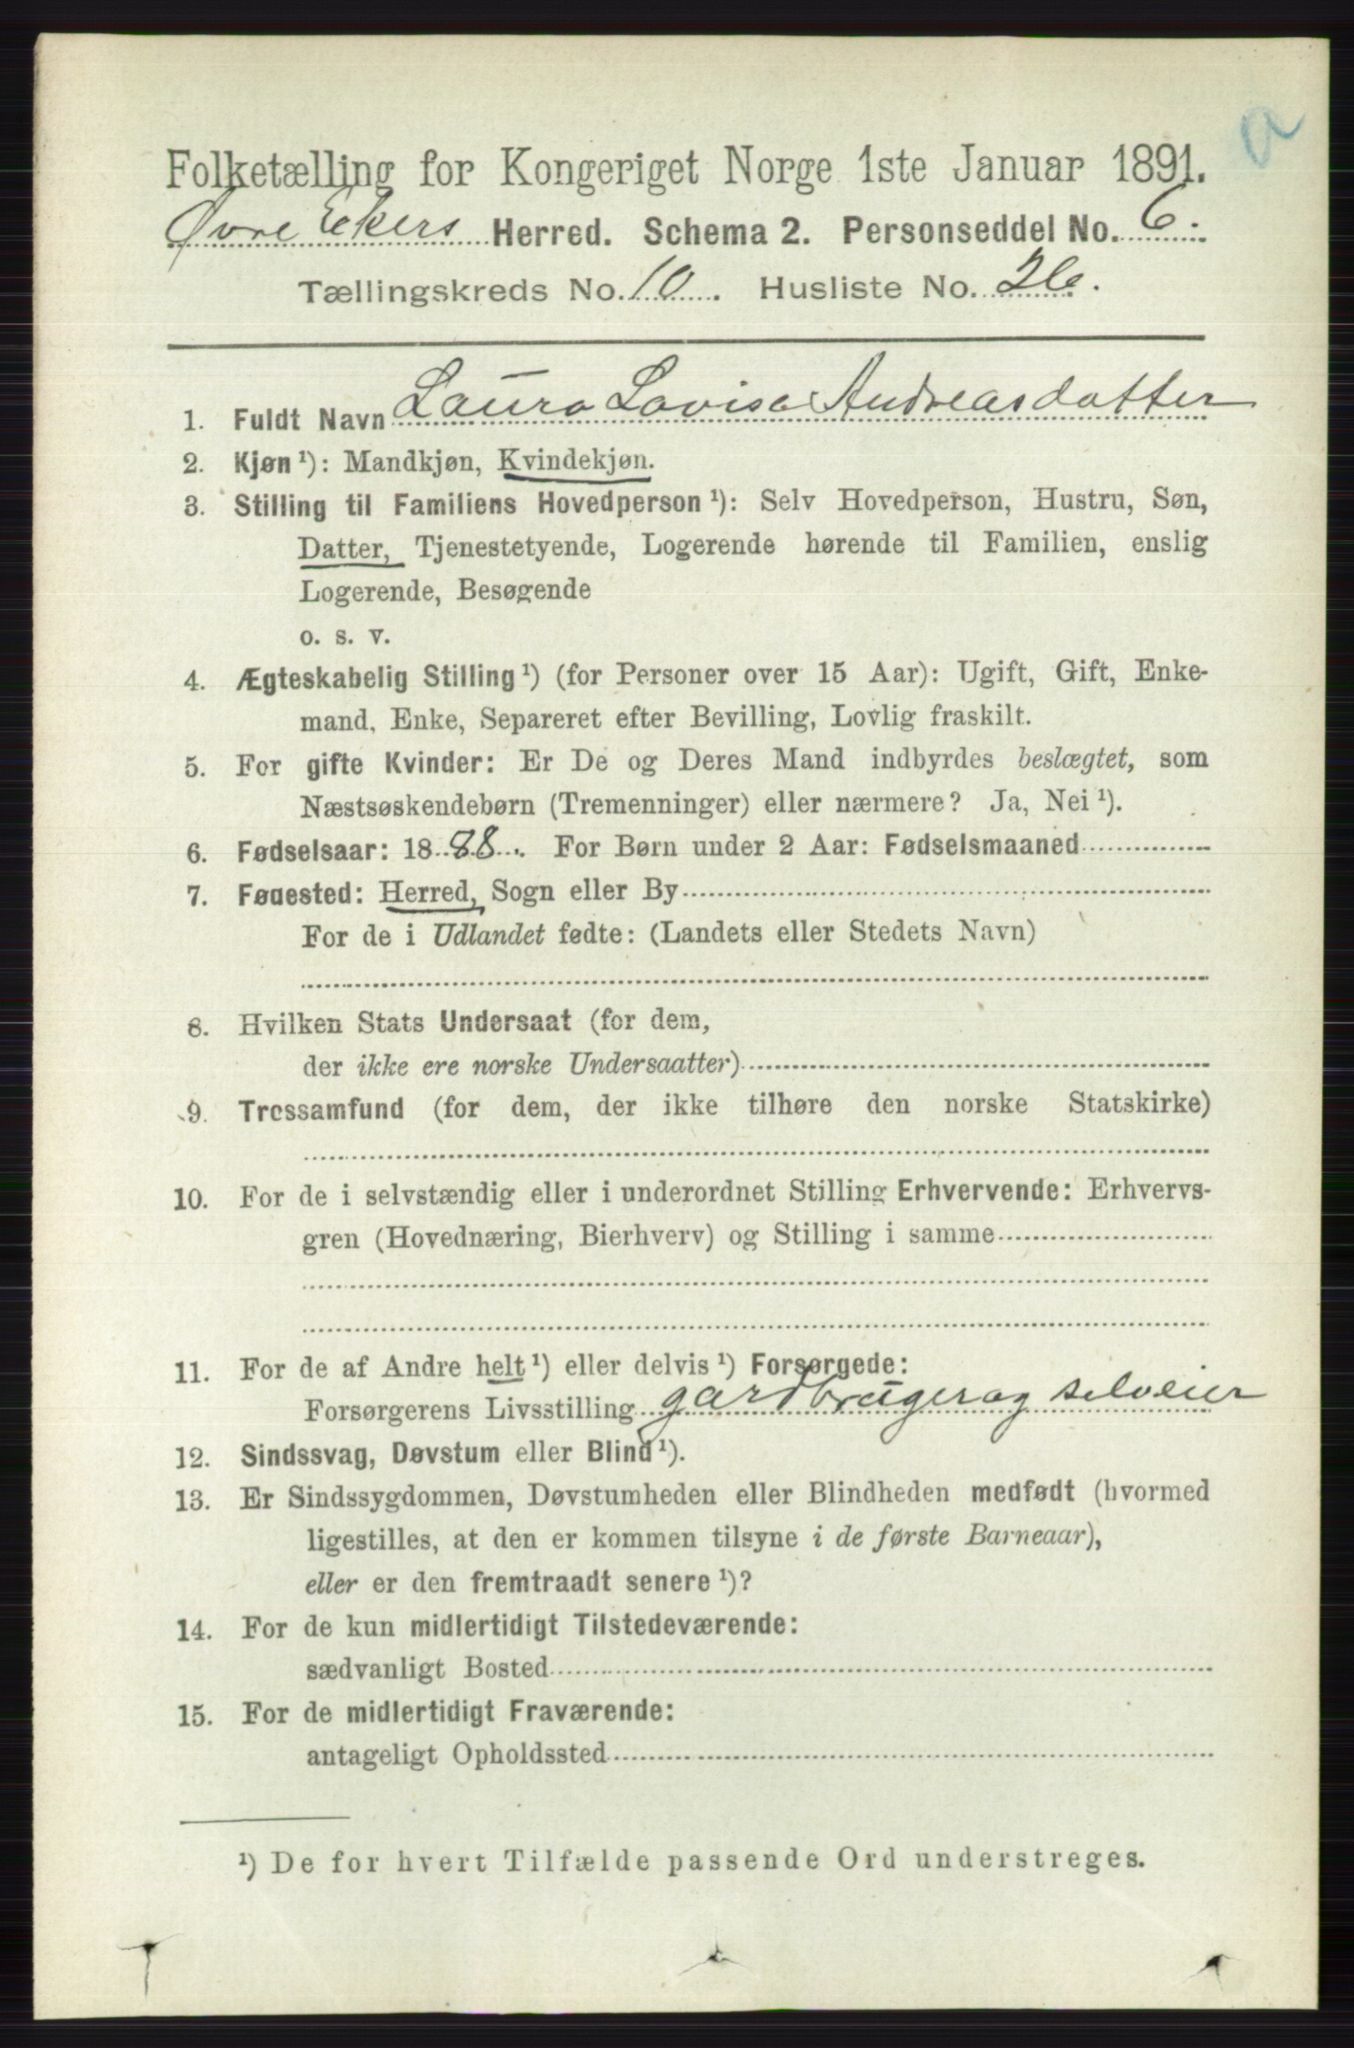 a
Folketælling for Kongeriget Norge 1ste Januar 1891.
Øvre Ekers Herred. Schema 2. Personseddel No. 6.
Tællingskreds No. 10. Husliste No. 26.
1. Fuldt Navn Laura Lovise Andreasdatter
2. Kjøn¹): Mandkjøn, Kvindekjøn.
3. Stilling til Familiens Hovedperson¹): Selv Hovedperson, Hustru, Søn,
Datter, Tjenestetyende, Logerende hørende til Familien, enslig
Logerende, Besøgende
o. s. v.
4. Ægteskabelig Stilling¹) (for Personer over 15 Aar): Ugift, Gift, Enke-
mand, Enke, Separeret efter Bevilling, Lovlig fraskilt.
5. For gifte Kvinder: Er De og Deres Mand indbyrdes beslægtet, som
Næstsøskendebørn (Tremenninger) eller nærmere? Ja, Nei¹).
6. Fødselsaar: 1888. For Børn under 2 Aar: Fødselsmaaned
7. Fødested: Herred, Sogn eller By
For de i Udlandet fødte: (Landets eller Stedets Navn)
8. Hvilken Stats Undersaat (for dem,
der ikke ere norske Undersaatter)
9. Trossamfund (for dem, der ikke tilhøre den norske Statskirke)
10. For de i selvstændig eller i underordnet Stilling Erhvervende: Erhvervs-
gren (Hovednæring, Bierhverv) og Stilling i samme
11. For de af Andre helt¹) eller delvis¹) Forsørgede:
Forsørgerens Livsstilling gardbruger og selveier
12. Sindssvag, Døvstum eller Blind¹).
13. Er Sindssygdommen, Døvstumheden eller Blindheden medfødt (hvormed
ligestilles, at den er kommen tilsyne i de første Barneaar),
eller er den fremtraadt senere¹)?
14. For de kun midlertidigt Tilstedeværende:
sædvanligt Bosted
15. For de midlertidigt Fraværende:
antageligt Opholdssted
¹) De for hvert Tilfælde passende Ord understreges.